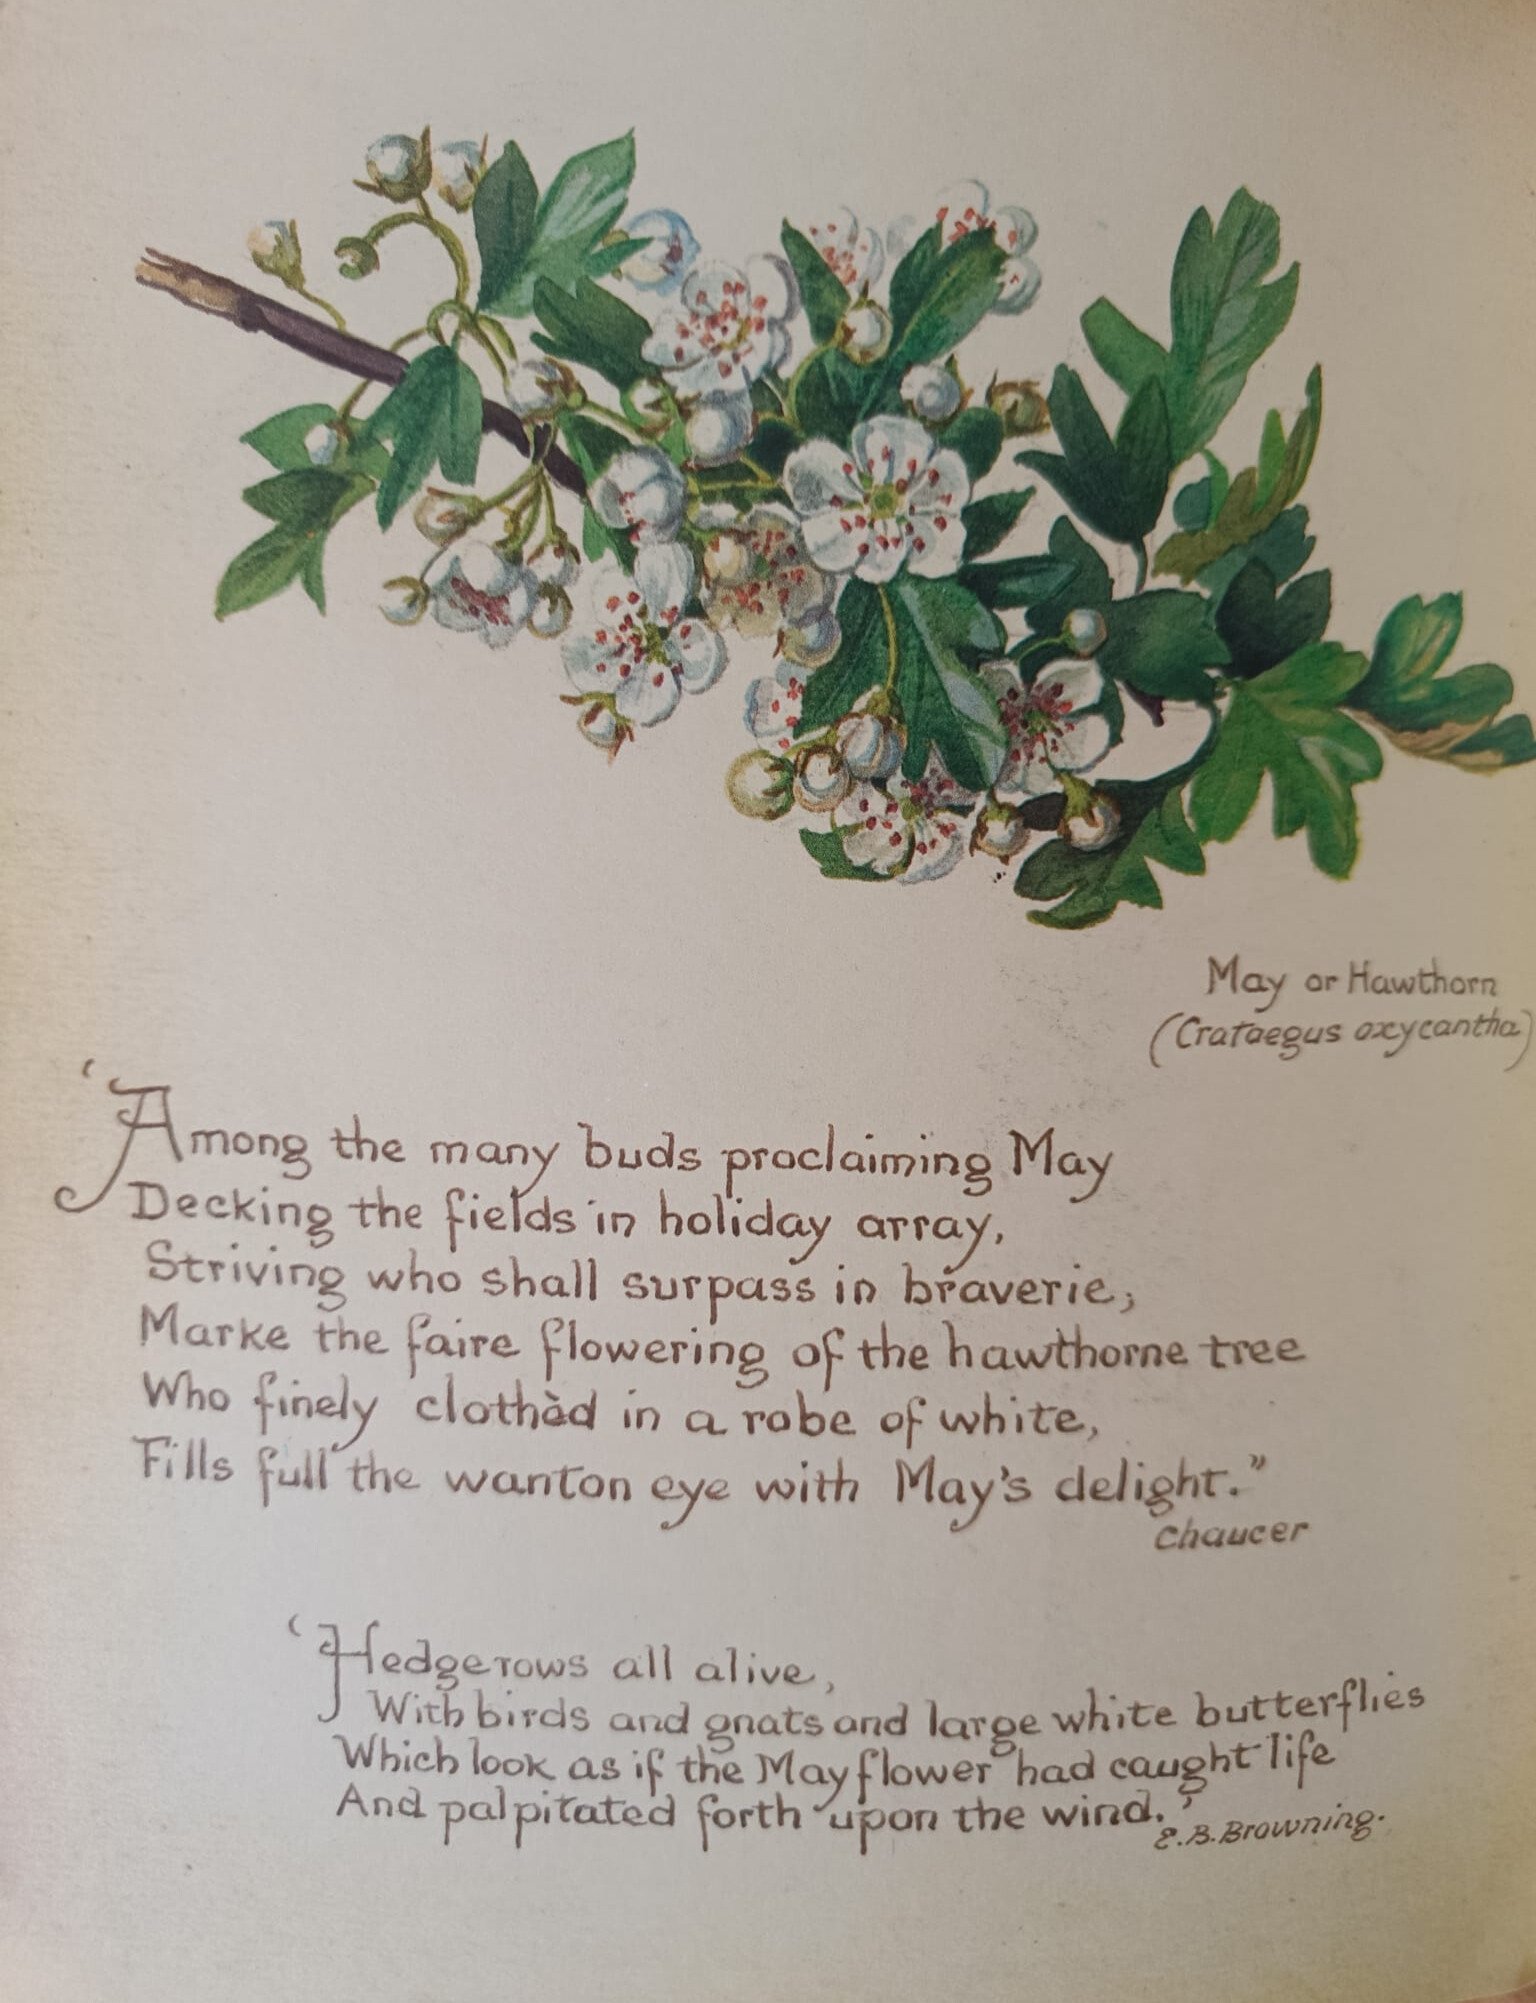 May or Hawthorn
(Crataegus oxycantha)
'Among the many buds proclaiming May
Decking the fields in holiday array,
Striving who shall surpass in braverie,
Marke the faire flowering of the hawthorne tree
Who finely clothèd in a robe of white,
Fills full the wanton eye with May's delight."
Chaucer
'Hedgerows all alive,
With birds and gnats and large white butterflies
Which look as if the May flower had caught life
And palpitated forth upon the wind.'
E.B.Browning.